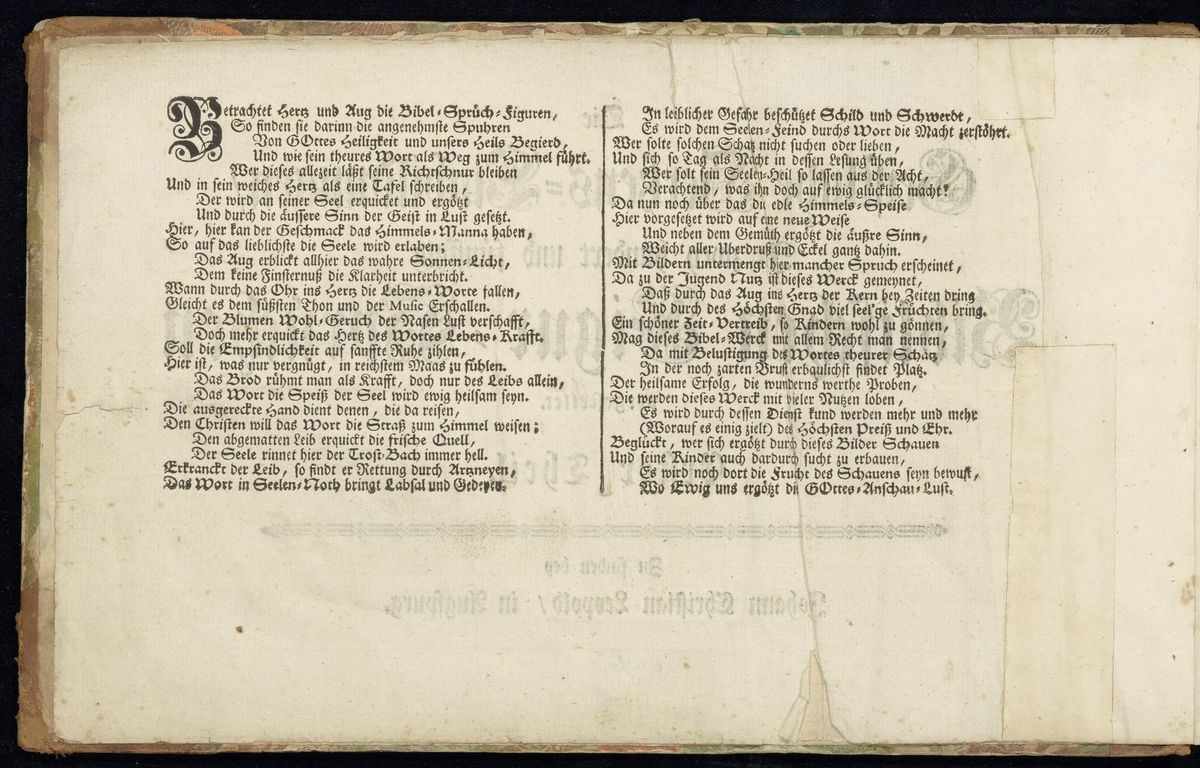 Betrachtet Hertz und Aug die Bibel-Sprüch-Figuren,
So finden sie darinn die angenehmste Spuhren
Von GOttes Heiligkeit und unsers Heils Begierd,
Und wie sein theures Wort als Weg zum Himmel führt.
Wer dieses allezeit läßt seine Richtschnur bleiben
Und in sein weiches Hertz als eine Tafel schreiben,
Der wird an seiner Seel erquicket und ergötzt
Und durch die äussere Sinn der Geist in Lust gesetzt.
Hier, hier kan der Geschmack das Himmels-Manna haben,
So auf das lieblichste die Seele wird erlaben;
Das Aug erblickt allhier das wahre Sonnen-Licht,
Dem keine Finsternuß die Klarheit unterbricht.
Wann durch das Ohr ins Hertz die Lebens-Worte fallen,
Gleicht es dem süßsten Thon und der Music Erschallen.
Der Blumen Wohl-Geruch der Nasen Lust verschafft,
Doch mehr erquickt das Hertz des Wortes Lebens-Krafft.
Soll die Empfindlichkeit auf sanffte Ruhe zihlen,
Hier ist, was nur vergnügt, in reichstem Maas zu fühlen.
Das Brod rühmt man als Krafft, doch nur des Leibs allein,
Das Wort die Speiß der Seel wird ewig heilsam seyn.
Die ausgereckte Hand dient denen, die da reisen,
Den Christen will das Wort die Straß zum Himmel weisen;
Den abgematten Leib erquickt die frische Quell,
Der Seele rinnet hier der Trost-Bach immer hell.
Erkranckt der Leib, so findt er Rettung durch Artzneyen,
Das Wort in Seelen-Noth bringt Labsal und Gedeyen.
In leiblicher Gefahr beschützet Schild und Schwerdt,
Es wird dem Seelen-Feind durchs Wort die Macht zerstöhrt.
Wer solte solchen Schatz nicht suchen oder lieben,
Und sich so Tag als Nacht in dessen Lesung üben,
Wer solt sein Seelen-Heil so lassen aus der Acht,
Verachtend, was ihn doch auf ewig glücklich macht?
Da nun noch über das die edle Himmels-Speise
Hier vorgesetzet wird auf eine neue Weise
Und neben dem Gemüth ergötzt die äußre Sinn,
Weicht aller Uberdruß und Eckel gantz dahin.
Mit Bildern untermengt hier mancher Spruch erscheinet,
Da zu der Jugend Nutz ist dieses Werck gemeynet,
Daß durch das Aug ins Hertz der Kern bey Zeiten dring
Und durch des Höchsten Gnad viel seel'ge Früchten bring.
Ein schöner Zeit-Vertreib, so Kindern wohl zu gönnen,
Mag dieses Bibel-Werck mit allem Recht man nennen,
Da mit Belustigung des Wortes theurer Schatz
In der noch zarten Brust erbaulichst findet Platz.
Der heilsame Erfolg, die wunderns werthe Proben,
Die werden dieses Werck mit vieler Nutzen loben,
Es wird durch dessen Dienst kund werden mehr und mehr
(Worauf es einig zielt) des Höchsten Preiß und Ehr.
Beglückt, wer sich ergötzt durch dieses Bilder Schauen
Und seine Kinder auch dardurch sucht zu erbauen,
Es wird noch dort die Frucht des Schauens seyn bewust,
Wo Ewig uns ergötzt die GOttes-Anschau-Lust.